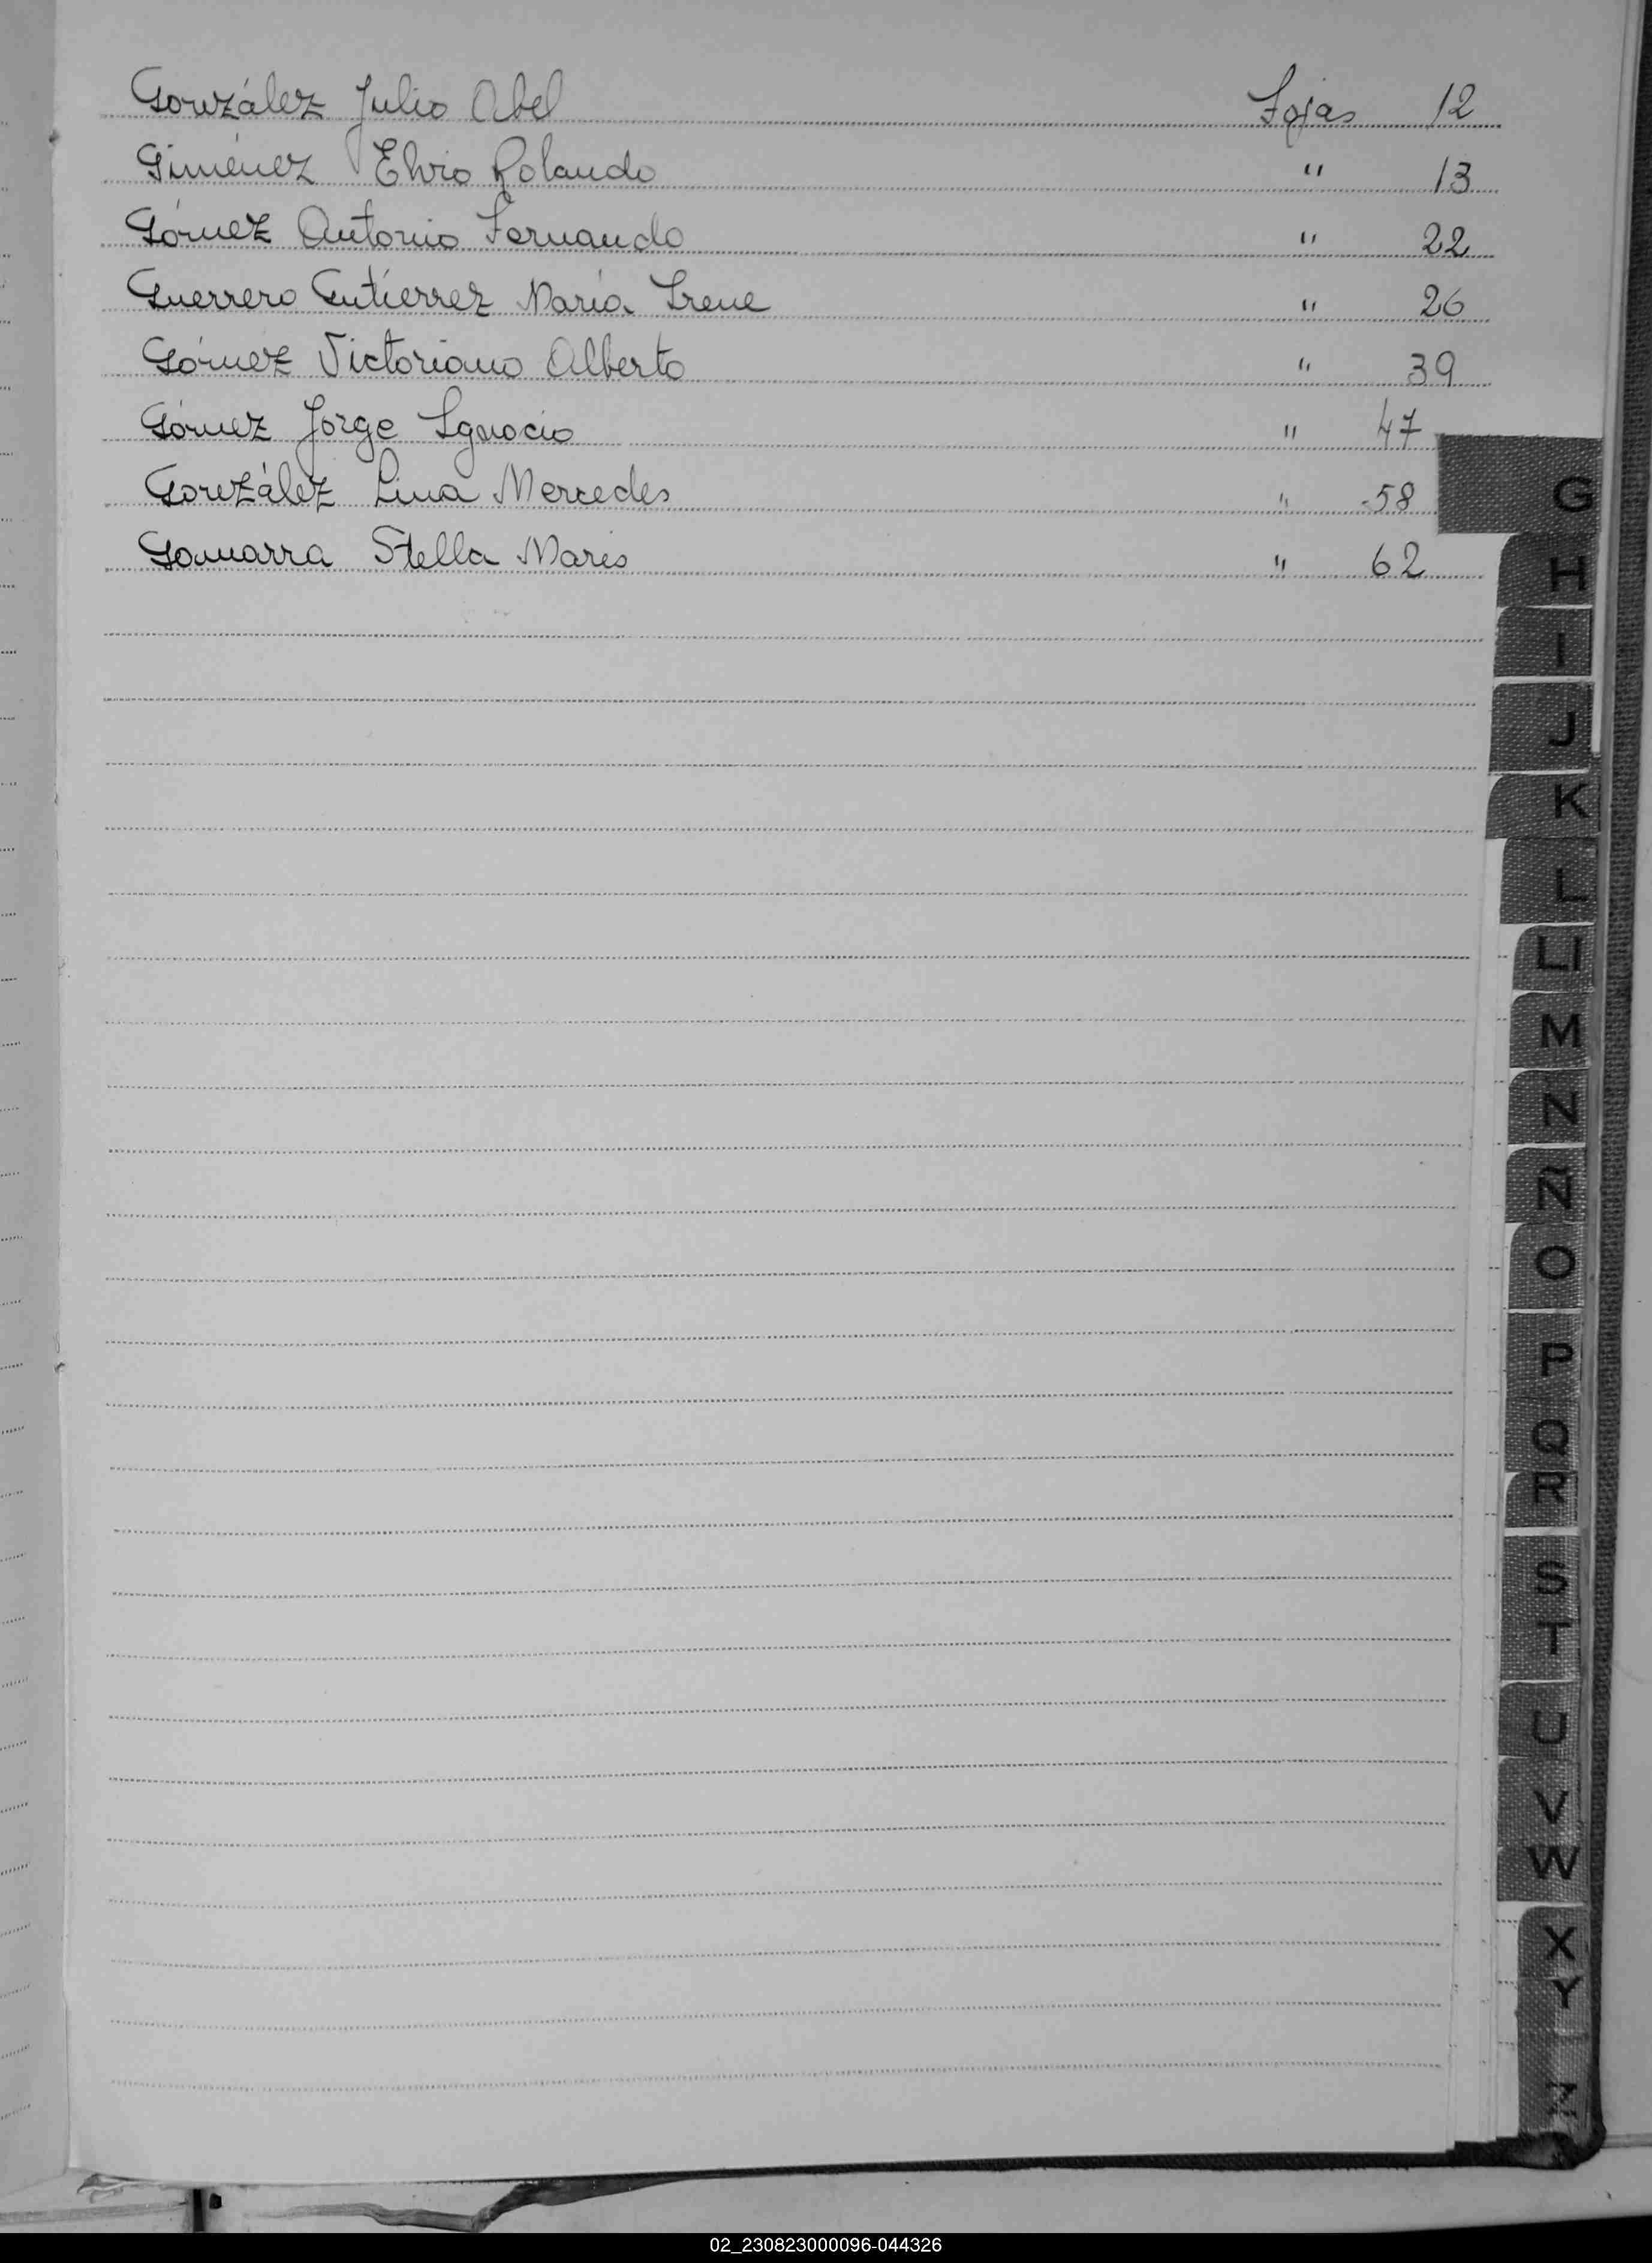 González Julio Abel Fojas 12
Giménez Elvio Rolando " 13
Gómez Antonio Fernando " 22
Guerrero Gutiérrez María Irene " 26
Gómez Victoriano Alberto " 39
Gómez Jorge Ignacio " 47
González Lina Mercedes " 58
Gamarra Stella Maris " 62
G
H
I
J
K
L
Ll
M
N
Ñ
O
P
Q
R
S
T
U
V
W
X
Y
Z
02_230823000096-044326